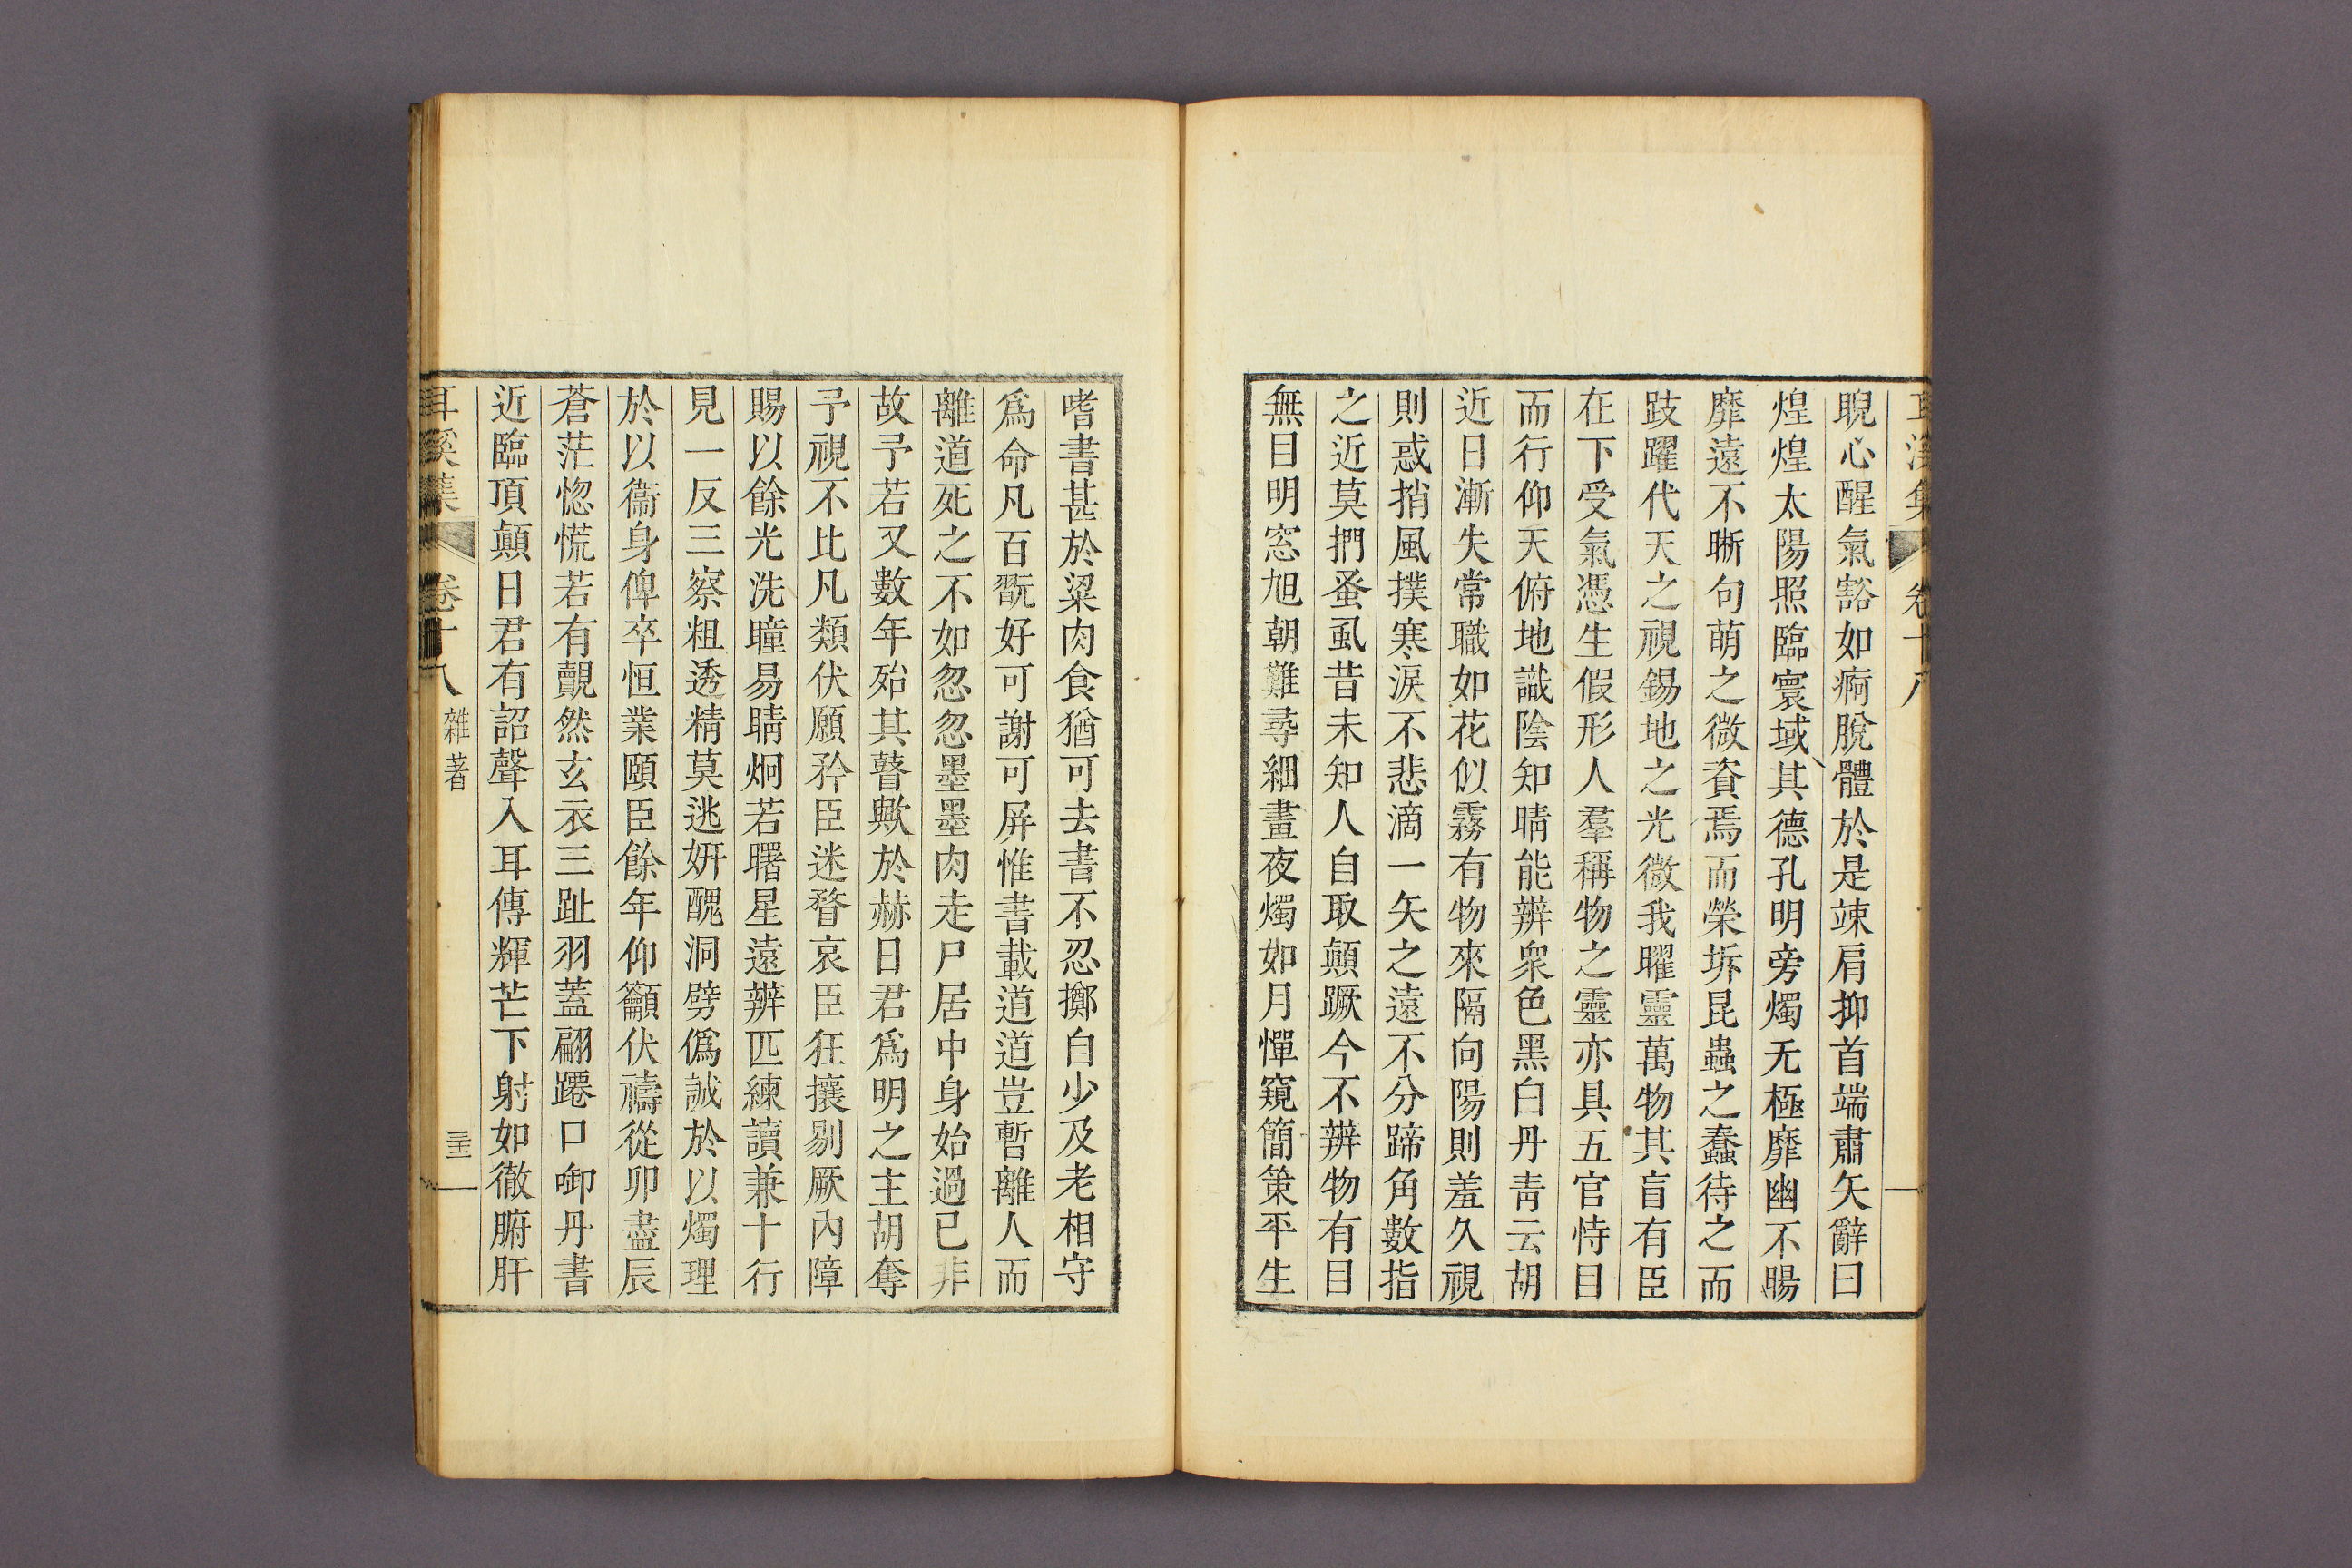 睨心醒氣豁如痾脫體於是竦肩抑首端肅矢辭曰
煌煌太陽照臨寰域其德孔明旁燭无極靡幽不暘
靡遠不晰句萌之微資焉而榮坼昆蟲之蠢待之而
跂躍代天之視錫地之光微我曜靈萬物其盲有臣
在下受氣憑生假形人羣稱物之靈亦具五官恃目
而行仰天俯地識陰知晴能辨衆色黑白丹靑云胡
近日漸失常職如花似霧有物來隔向陽則羞久視
則惑捎風撲寒淚不悲滴一矢之遠不分蹄角數指
之近莫捫蚤虱昔未知人自取顚蹶今不辨物有目
無目明窓旭朝難尋細畫夜燭如月憚窺簡策平生
嗜書甚於粱肉食猶可去書不忍擲自少及老相守
爲命凡百翫好可謝可屛惟書載道道豈暫離人而
離道死之不如忽忽墨墨肉走尸居中身始過已非
故予若又數年殆其瞽歟於赫日君爲明之主胡奪
予視不比凡類伏願矜臣迷瞀哀臣狂攘剔厥內障
賜以餘光洗瞳易睛炯若曙星遠辨匹練讀兼十行
見一反三察粗透精莫逃姸醜洞劈僞誠於以燭理
於以衞身俾卒恒業頤臣餘年仰籲伏禱從卯盡辰
蒼茫惚慌若有覿然玄衣三趾羽蓋翩躚口啣丹書
近臨頂顚日君有詔聲入耳傳輝芒下射如徹腑肝
耳溪集 卷十八 雜著